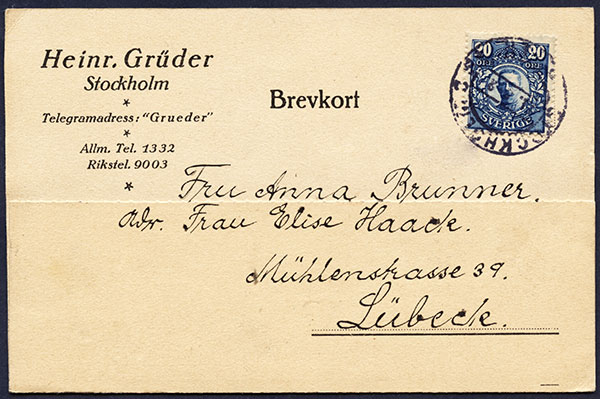 Heinr. Grüder
Stockholm
*
Telegramadress: "Grueder"
*
Allm. Tel. 1332
Rikstel. 9003
*
Brevkort
20 20
ÖRE ÖRE
SVERIGE
STOCKHOLM
Fru Anna Brunner.
Adr. Frau Elise Haack.
Mühlenstrasse 39.
Lübeck.